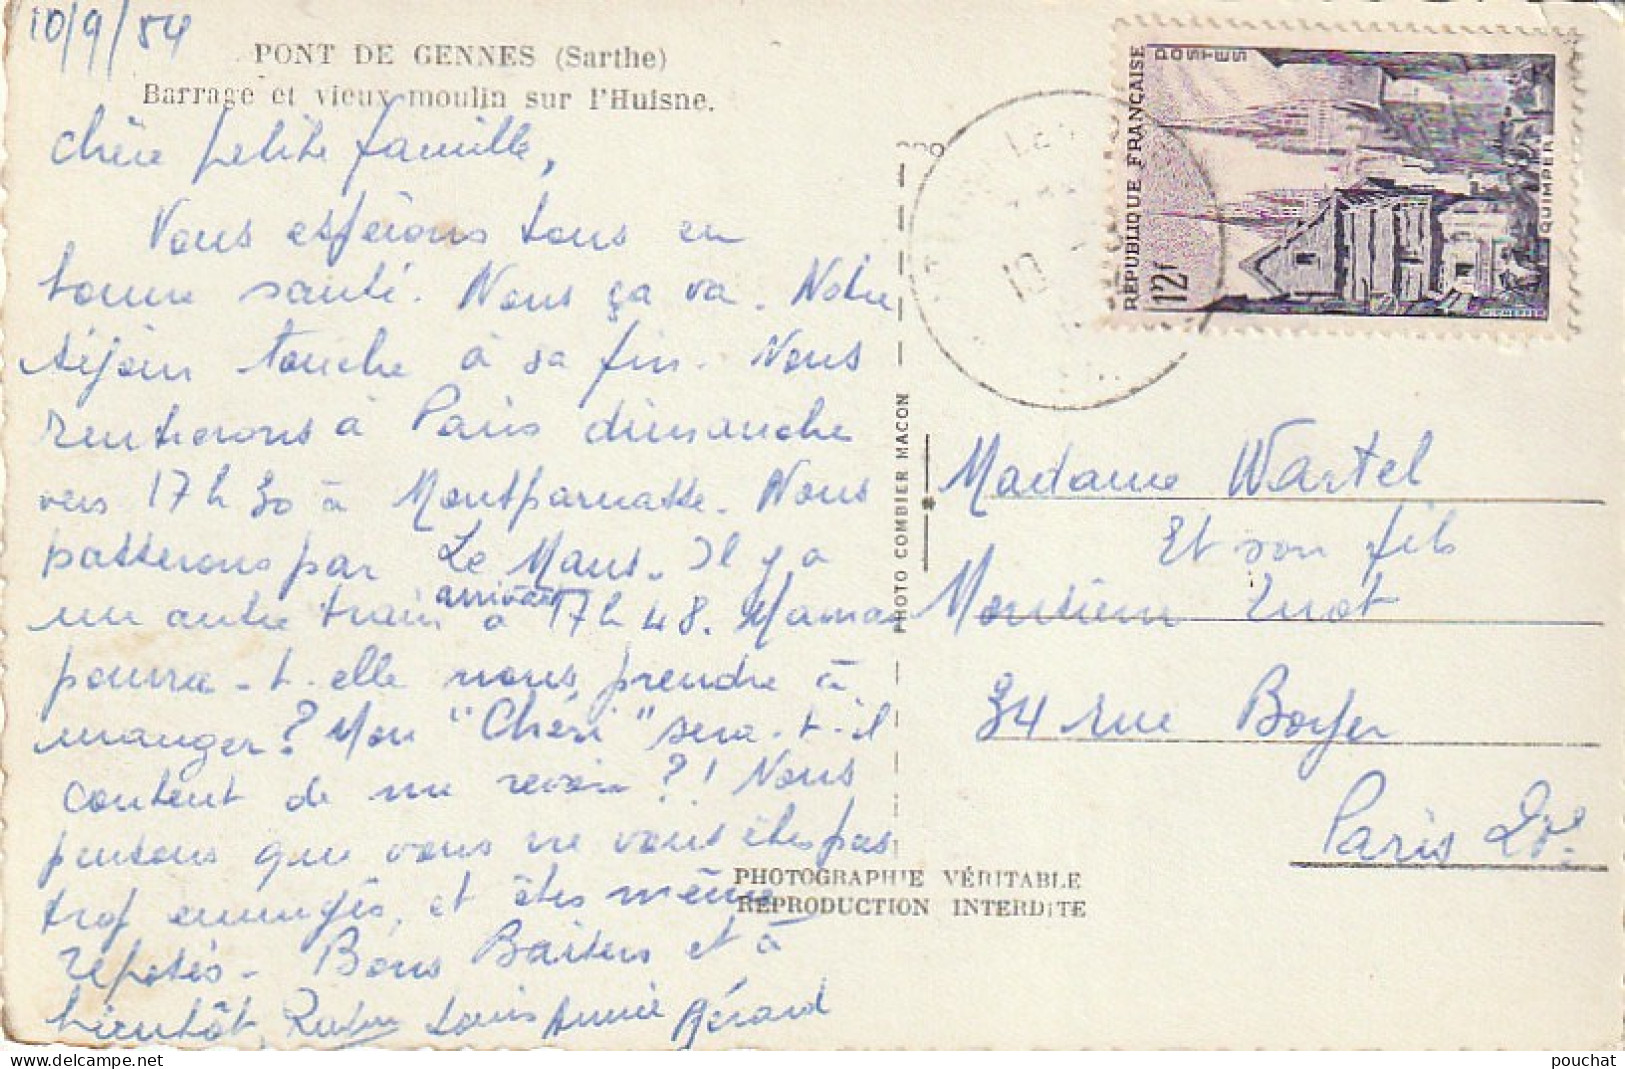 10/9/54
PONT DE GENNES (Sarthe)
Barrage et vieux moulin sur l'Huisne.
Chère petite famille,
Nous espérons tous en
bonne santé. Nous ça va. Notre
séjour touche à sa fin. Nous
rentrerons à Paris dimanche
vers 17 h 30 à Montparnasse. Nous
passerons par Le Mans. Il y a
un autre train arrivant à 17 h 48. Maman
pourra-t-elle nous prendre à
manger? Mon "Chéri" sera-t-il
content de me revoir?! Nous
pensons que vous ne vous êtes pas
trop ennuyés, et êtes même
reposés. Bons Baisers et à
bientôt, Louis Annie Gérard
PHOTO COMBIER MACON
RÉPUBLIQUE FRANÇAISE
POSTES
12f
QUIMPER
10
Madame Wartel
Et son fils
Monsieur
34 rue Boyer
Paris
PHOTOGRAPHIE VÉRITABLE
REPRODUCTION INTERDITE
pouchat